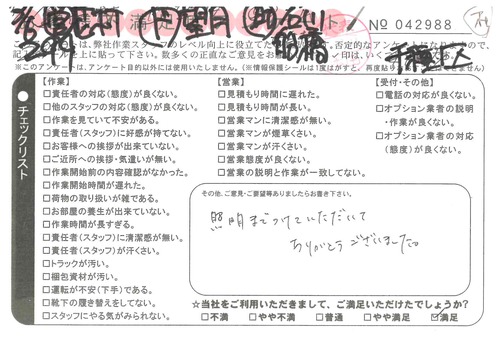 満足
ト
No 042988
トは、弊社作業スタッフのレベル向上に役立てた
否定的なアンケートになりますので、
※このアンケートは、アンケート目的以外には使用いたしません。（※情報保護シールは1度はがすと、再度貼り
チェックリスト
【作業】
□責任者の対応（態度）が良くない。
□他のスタッフの対応（態度）が良くない。
□作業を見ていて不安がある。
□責任者（スタッフ）に好感が持てない。
□お客様への挨拶が出来ていない。
□ご近所への挨拶・気遣いが無い。
□作業開始前の内容確認がなかった。
□作業開始時間が遅れた。
□荷物の取り扱いが雑である。
□お部屋の養生が出来ていない。
□作業時間が長すぎる。
□責任者（スタッフ）に清潔感が無い。
□責任者（スタッフ）が汗くさい。
□トラックが汚い。
□梱包資材が汚い。
□運転が不安（下手）である。
□靴下の履き替えをしてない。
□スタッフにやる気がみられない。
【営業】
□見積もり時間に遅れた。
□見積もり時間が長い。
□営業マンに清潔感が無い。
□営業マンが煙草くさい。
□営業マンが汗くさい。
□営業態度が良くない。
□営業の説明と作業が一致してない。
【受付・その他】
□電話の対応が良くない。
□オプション業者の説明
・作業が良くない。
□オプション業者の対応
（態度）が良くない。
その他、ご意見・ご要望等ありましたらお書き下さい。
照明までつけていただいて
ありがとうございました。
☆当社をご利用いただきまして、ご満足いただけたでしょうか？
□不満 □やや不満 □普通 □やや満足 ☑満足